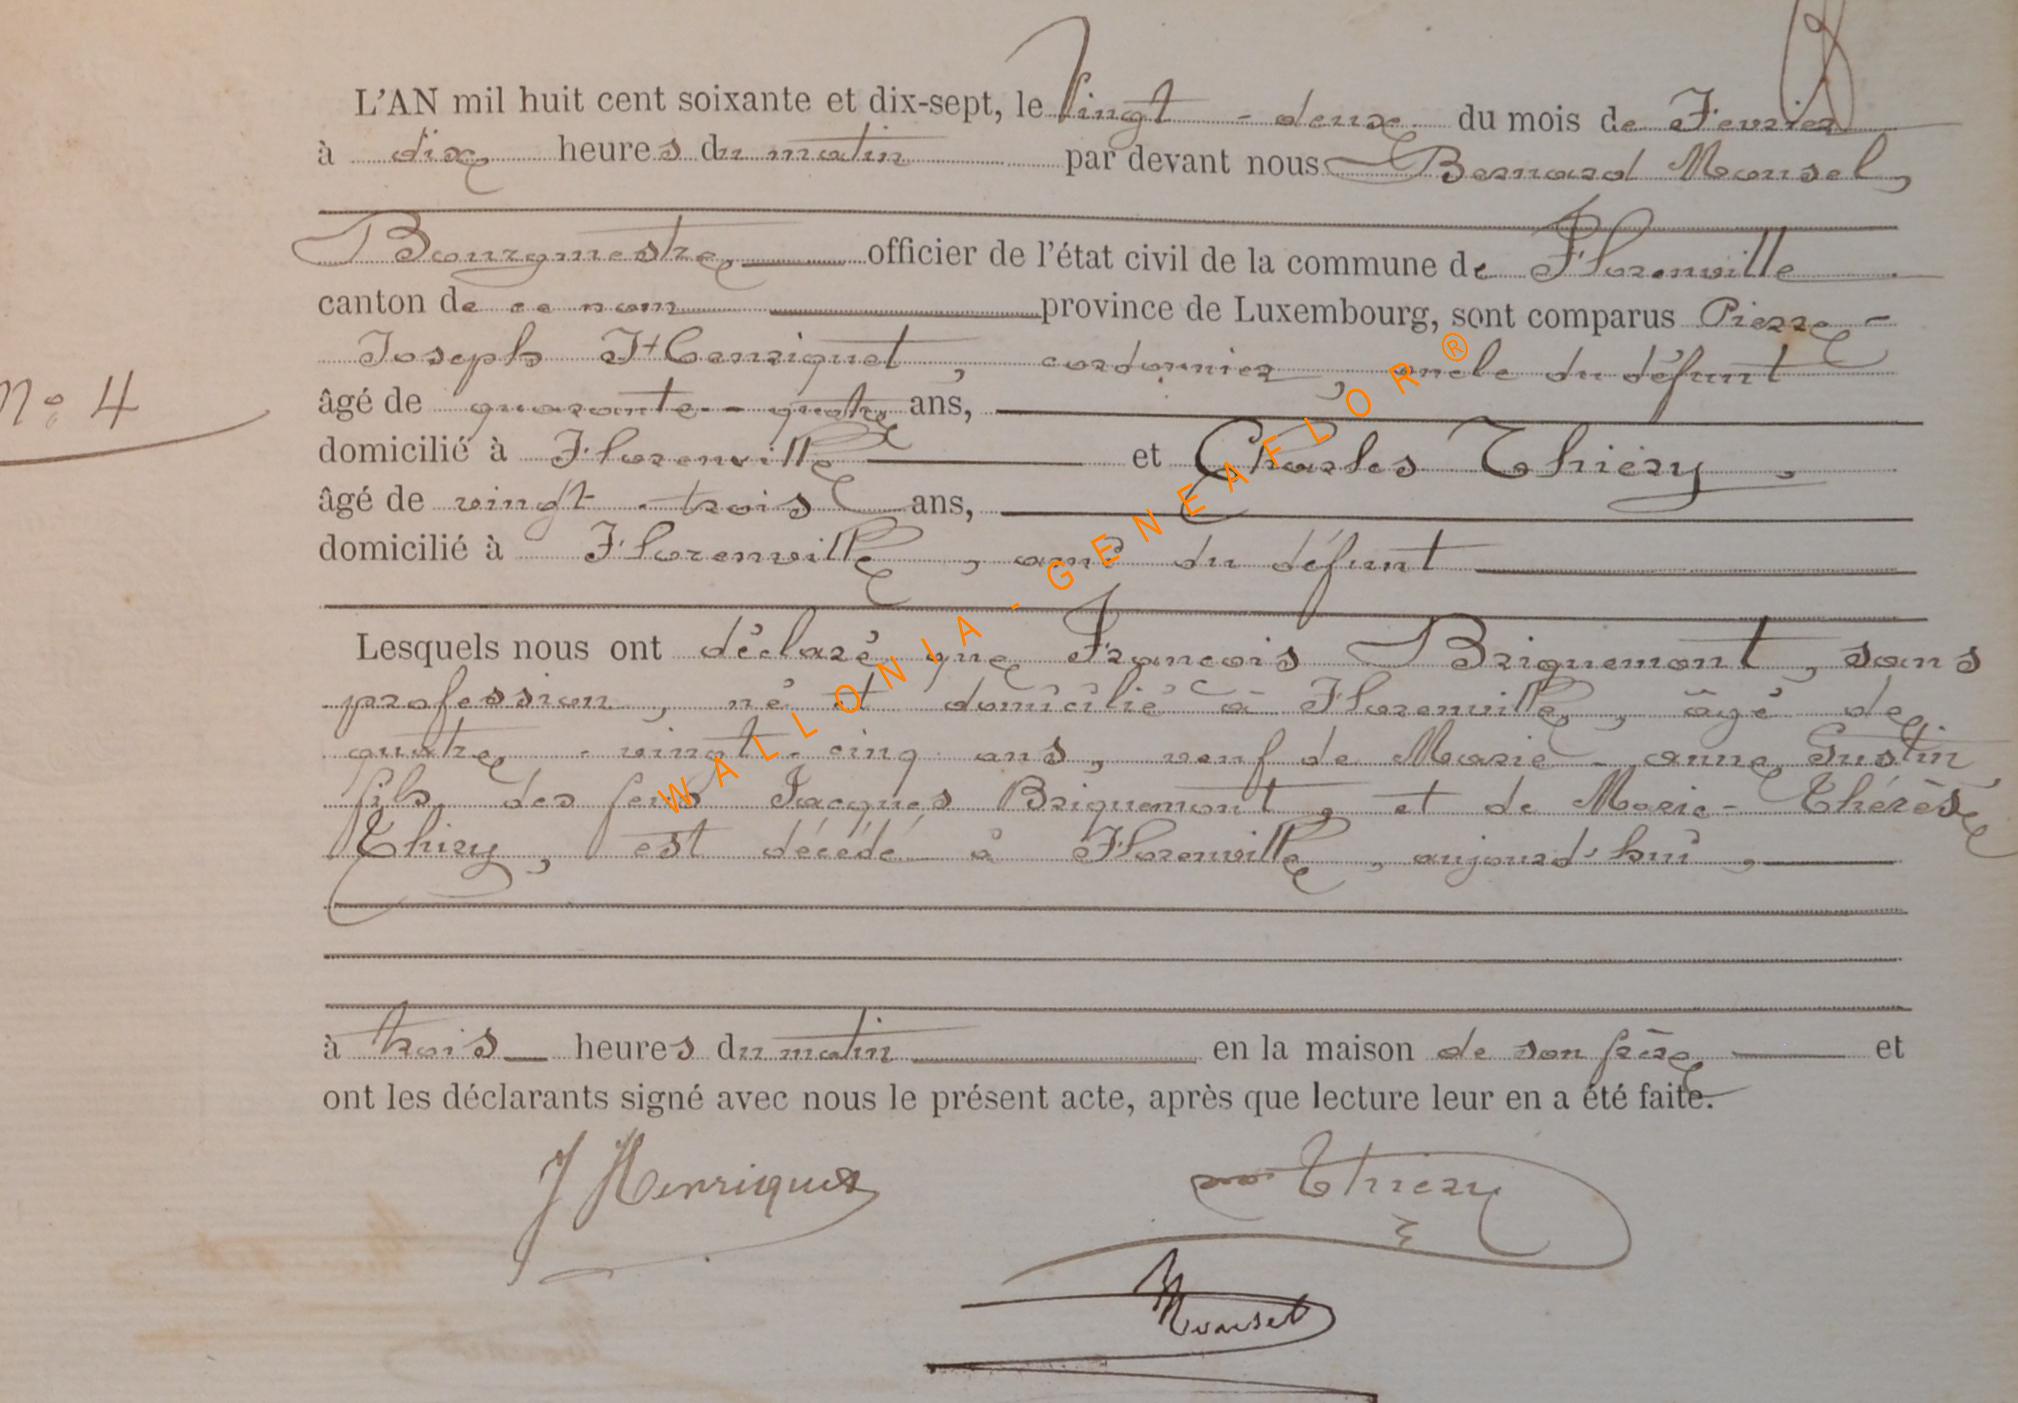 L'AN mil huit cent soixante et dix-sept, le Vingt-deux du mois de Fevrier
à dix heures du matin par devant nous Bernard Mousel,
Bourgmestre officier de l'état civil de la commune de Florenville
canton de ce nom province de Luxembourg, sont comparus Pierre-
Joseph Henriquet, cordonnier, oncle du défunt
N° 4
âgé de quarante-quatre ans,
domicilié à Florenville et Charles Thiéry,
âgé de vingt-trois ans,
domicilié à Florenville, ami du défunt
Lesquels nous ont déclaré que François Briquemont, sans
profession, né et domicilié à Florenville, âgé de
quatre-vingt-cinq ans, veuf de Marie-anne Gustin
fils des feus Jacques Briquemont, et de Marie-Thérèse
Thiry, est décédé à Florenville, aujourd'hui,
à trois heures du matin en la maison de son frère et
ont les déclarants signé avec nous le présent acte, après que lecture leur en a été faite.
J Henriquet
Thiery
Mousel
WALLONIA-GENEAFLOR®